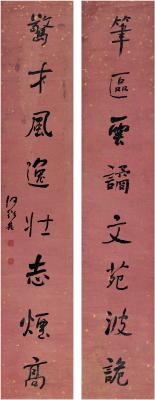 筆區雲譎文苑波詭
驚才風逸壯志煙高
何紹基